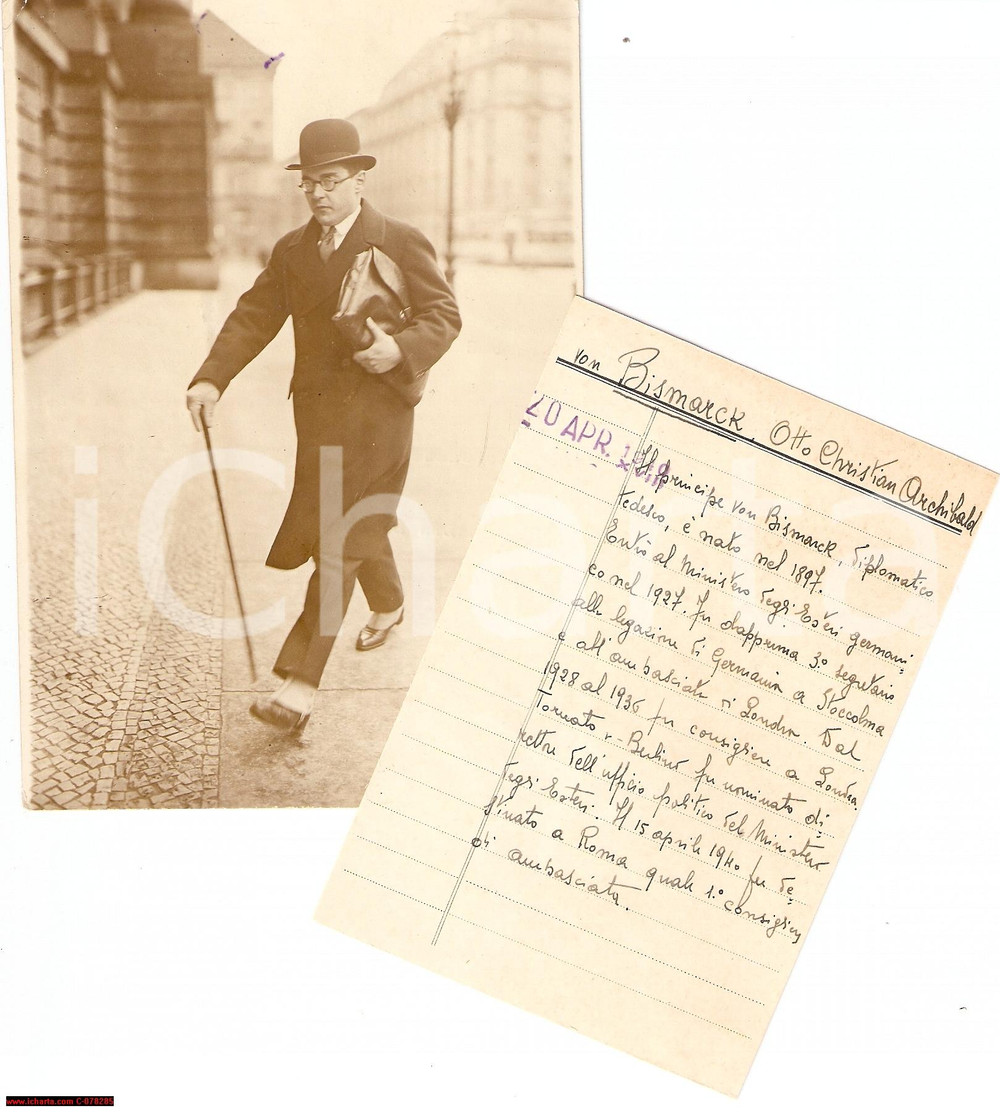 von Bismarck, Otto Christian Archibald
20 APR.
Il principe von Bismarck, diplomatico
tedesco, è nato nel 1897.
Entrò al Ministero degli Esteri germani-
co nel 1927. Fu dapprima 3.° segretario
alla legazione di Germania a Stoccolma
e all'ambasciata di Londra. Dal
1928 al 1936 fu consigliere a Londra.
Tornato a Berlino fu nominato di-
rettore dell'ufficio politico del Ministero
degli Esteri. Il 15 aprile 1940 fu de-
stinato a Roma quale 1.° consigliere
di ambasciata.
iCharta
www.icharta.com C-078285